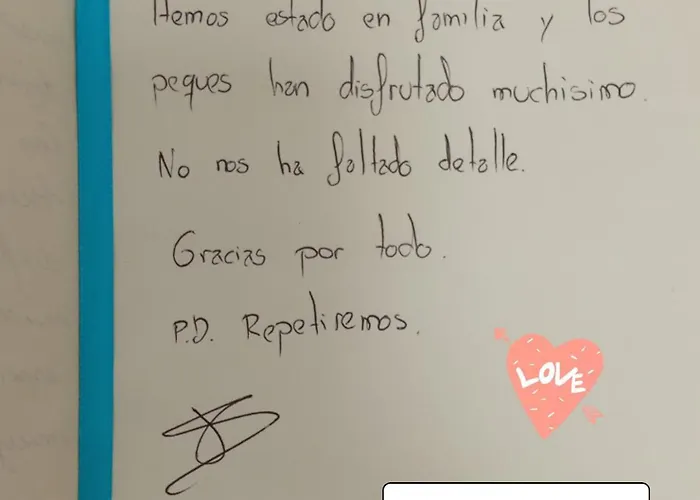 Hemos estado en familia y los
peques han disfrutado muchisimo.
No nos ha faltado detalle.
Gracias por todo.
P.D. Repetiremos.
LOVE